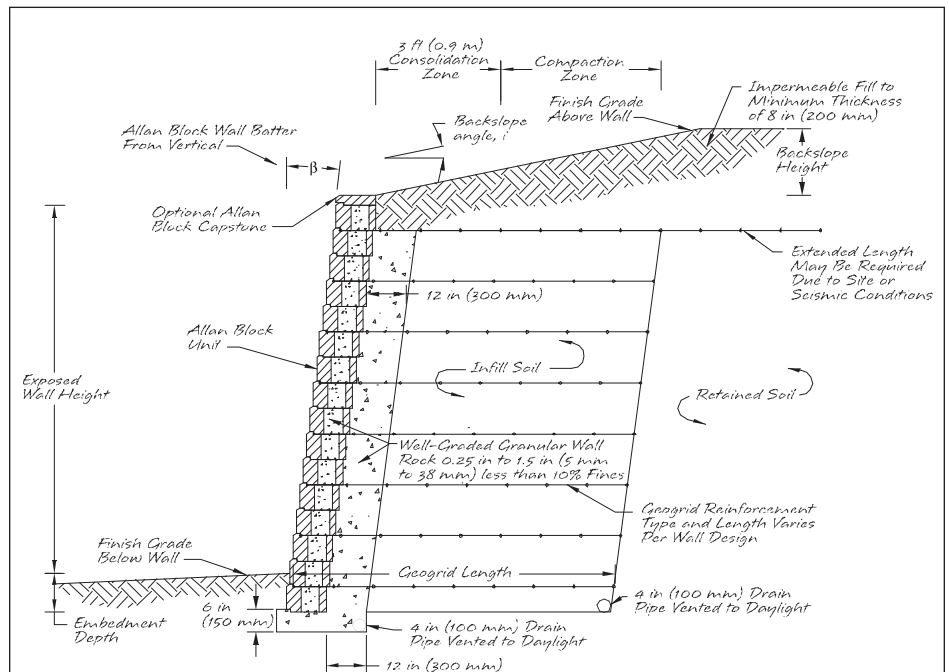 3 ft (0.9 m)
Consolidation
Zone
Compaction
Zone
Impermeable Fill to
Minimum Thickness
of 8 in (200 mm)
Finish Grade
Above Wall
Backslope
angle, i
Allan Block Wall Batter
From Vertical
β
Backslope
Height
Optional Allan
Block Capstone
Extended Length
May Be Required
Due to Site or
Seismic Conditions
12 in (300 mm)
Allan Block
Unit
Infill Soil
Exposed
Wall Height
Retained Soil
Well-Graded Granular Wall
Rock 0.25 in to 1.5 in (5 mm
to 38 mm) less than 10% Fines
Geogrid Reinforcement
Type and Length Varies
Per Wall Design
Finish Grade
Below Wall
Geogrid Length
6 in
(150 mm)
4 in (100 mm) Drain
Pipe Vented to Daylight
Embedment
Depth
4 in (100 mm) Drain
Pipe Vented to Daylight
12 in (300 mm)